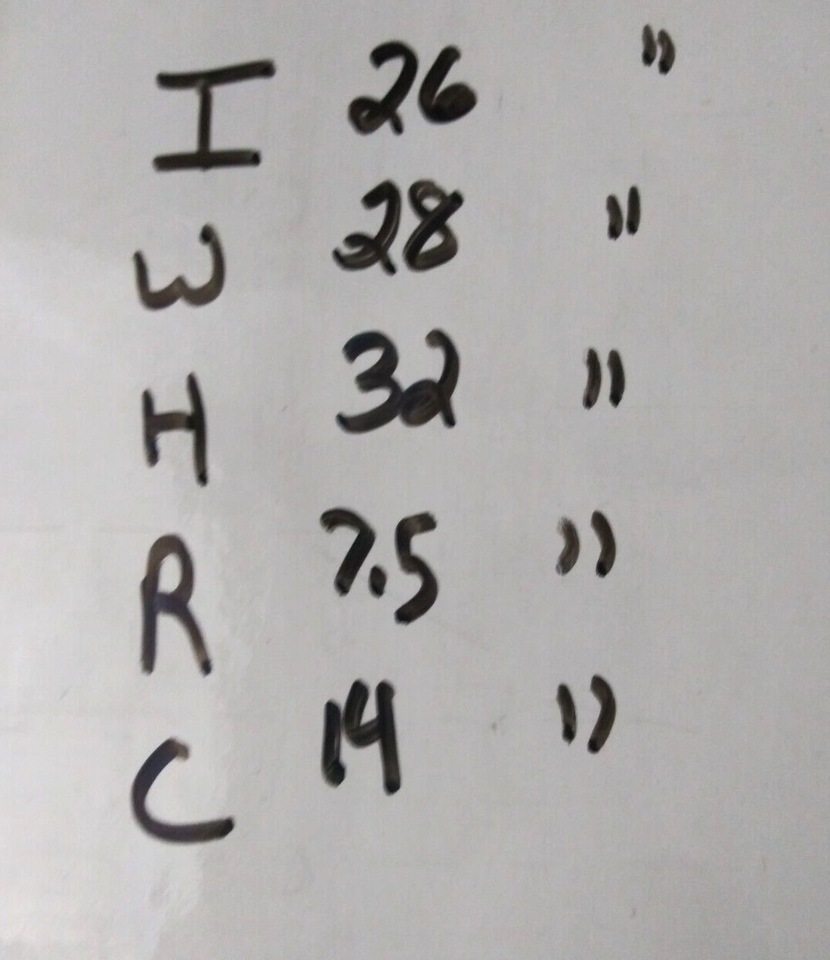 I 26 "
W 28 "
H 32 "
R 7.5 "
C 14 "